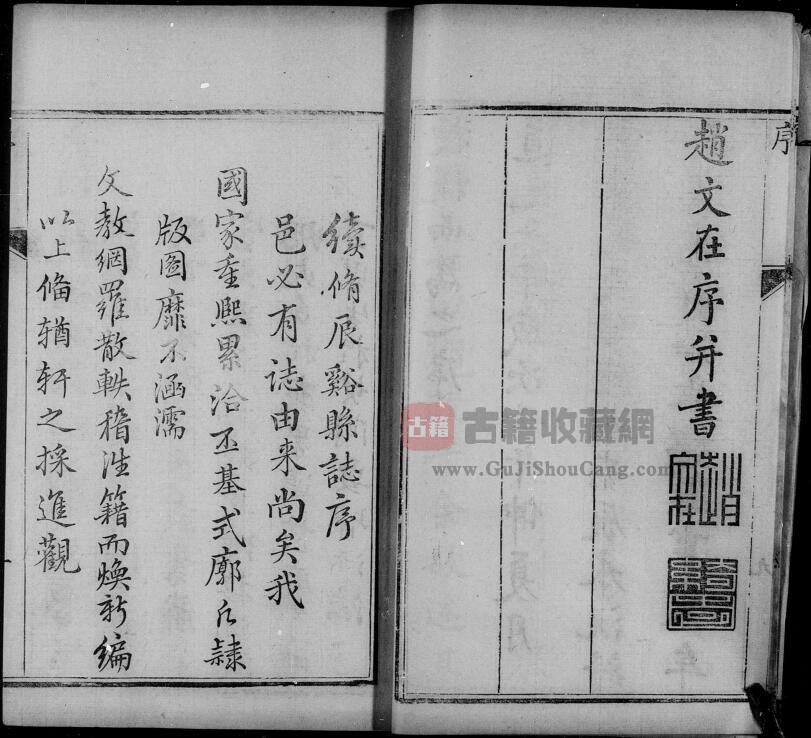 序
趙文在序并書
趙文在
續脩辰谿縣誌序
邑必有誌由来尚矣我
國家重熙累洽丕基式廓凡隷
版圖靡不涵濡
文教網羅散軼稽往籍而煥新編
以上備輶軒之採進觀
古籍
古籍收藏網
www.GuJiShouCang.com